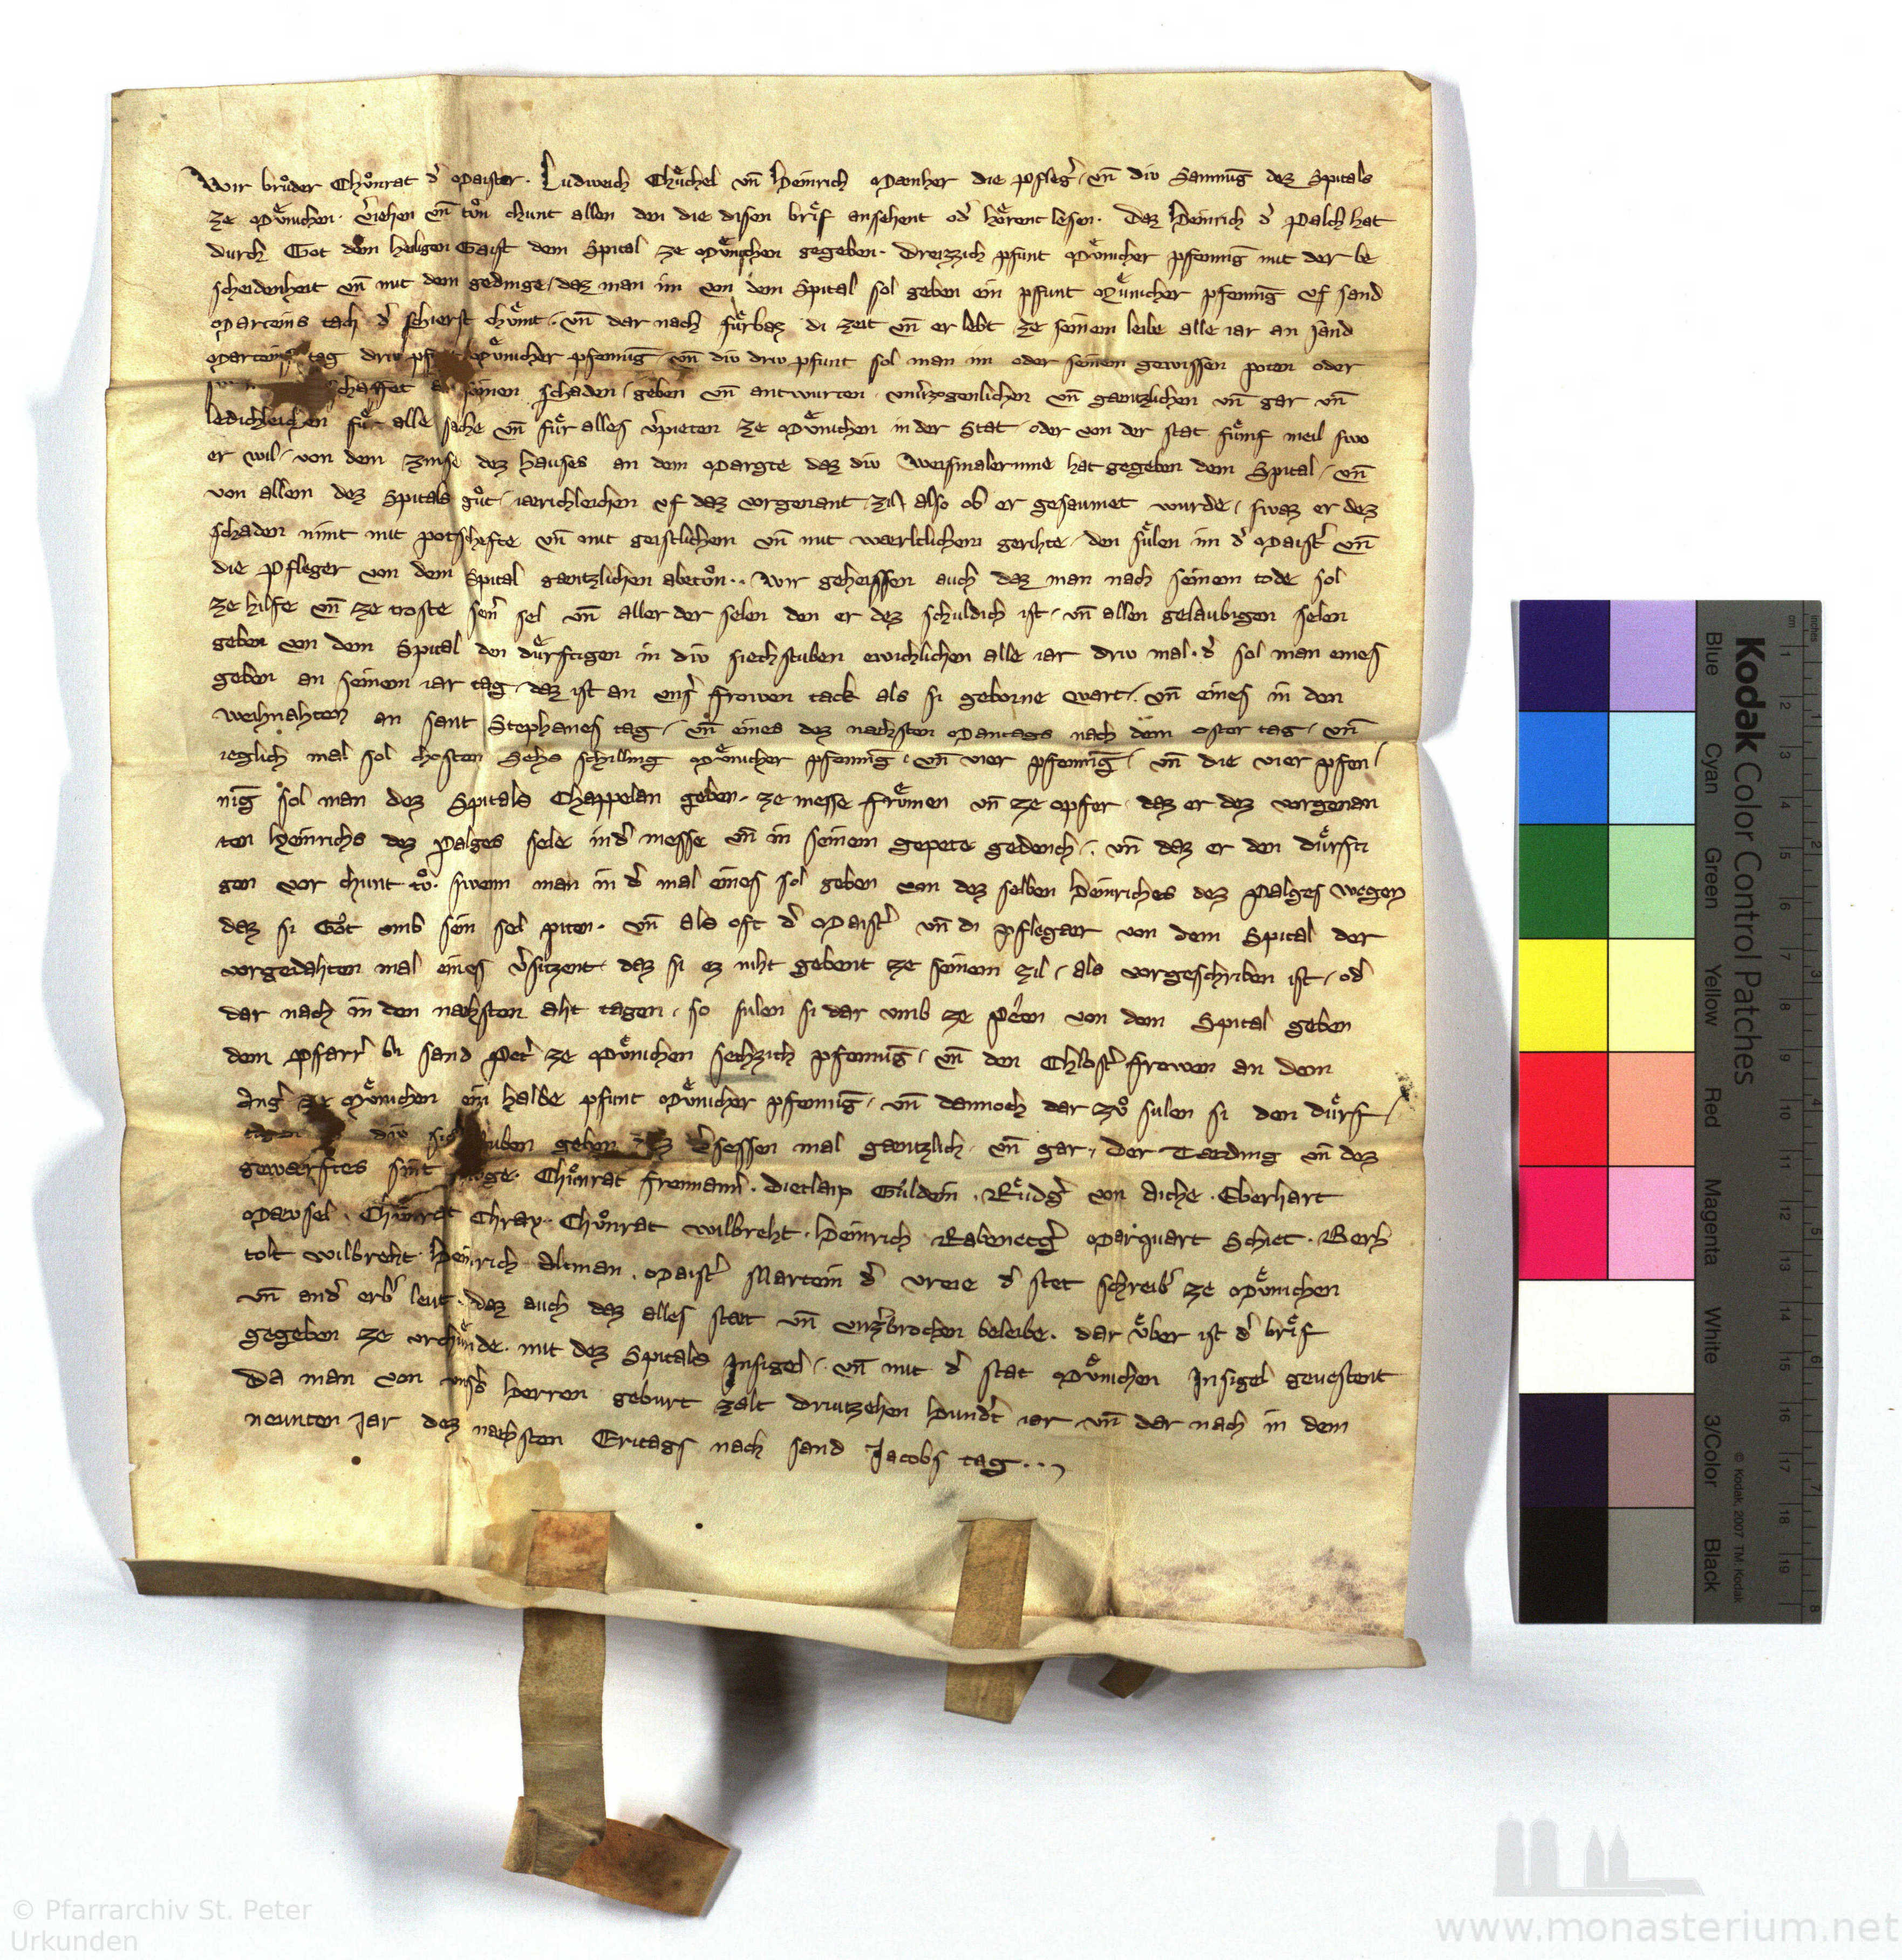 Wir brůder Chůnrat d̾ Maister. Ludweich Chu̇chel vn̄ Heinrich Maenher die Pfleg̾, vn̄ div Samnūg dez Spitals
ze Mu̇nichen. v̾iehen vn̄ tůn chunt allen den die disen brief ansehent od̾ hoͤrent lesen. Daz Heinrich d̾ Palch hat
durch Got dem heiligen Gaist dem Spital ze Muͤnichen gegeben. Dreizzich pfunt Muͤnicher pfennīg mit der be
scheidenheit vn̄ mit dem gedinge, daz man im von dem Spital sol geben ein pfunt Muͤnicher pfennīg vf sand
Marteins tach d̾ schierst chuͤmt. vn̄ dar nach fuͤrbaz di zeit vn̄ er lebt ze seinem leibe alle iar an sand
Marteins tag driv pf Muͤnicher pfennīg vn̄ div driv pfunt sol man im oder seinem gewissen poten oder
schaffet seinen schaden, geben vn̄ antwurten vnu̾zogenlichen vn̄ gaentzlichen vn̄ gar vn̄
ledichleichen fuͤr alle sache vn̄ fuͤr alles v̾pieten ze Muͤnichen in der Stat oder von der stat fuͤmf meil swo
er wil, von dem zinse dez hauses an dem Margte daz div Weismalerinne hat gegeben dem Spital, vn̄
von allem dez Spitals gůt, iaerichleichen vf daz vorgenant zil, also ob er gesaumet wurde, swaz er dez
schaden nimt mit potschefte vn̄ mit geistlichem vn̄ mit waerltlichem gerihte, den suͤlen im d̾ Maist̾ vn̄
die Pfleger von dem Spital gaentzlichen abetůn.. Wir geheissen auch daz man nach seinem tode sol
ze hilfe vn̄ ze troste sein̾ sel vn̄ aller der selen den er dez schuldich ist, vn̄ allen gelaubigen selen
geben von dem Spital den duͤrftigen in div siechstuben ewichlichen alle iar driv mal. d̾ sol man eines
geben an seinem iar tag, daz ist an vns̾ frowen tack als si geborne wart, vn̄ eines in den
weihnahten an sant Stephanes tag, vn̄ eines dez naehsten Maentags nach dem oster tag, vn̄
ieglich mal sol chosten Sehs schilling Muͤnicher pfennīg. vn̄ vier pfennīg, vn̄ die vier pfen
nīg sol man dez Spitals Chappelan geben. ze messe fruͤmen vn̄ ze opfer daz er dez vorgenan
ten Heinrichs dez Palges sele in d̾ messe vn̄ in seinem gepete gedench,. vn̄ daz er den duͤrfti
gen vor chunt tů. swenn man in d̾ mal eines sol geben von dez selben Heinriches dez Palges wegen
daz si Got vmb sein sel piten. vn̄ als oft d̾ Maist̾ vn̄ di pflegaer von dem Spital der
vorgedahten mal eines v̾sitzent, daz si ez niht gebent ze seinem zil, als vorgeschriben ist, od̾
dar nach in den naehsten aht tagen, so sulen si dar vmb ze pe̾en von dem Spital geben
dem Pfarr̾ bi sand Pet̾ ze Muͤnichen sechzich pfennīg, vn̄ den Chlost̾ frowen an dem
Ang̾ ze Muͤnichen ein halbe pfunt Muͤnicher pfennīg, vn̄ dannoch dar zů sulen si den duͤrf
tigen div si uben geben v̾sessen mal gaentzlich vn̄ gar, der Taeding vn̄ dez
gewaerftes sint Chůnrat Freimann̾. Dietlaip Guldein. Ruͤdg̾ von Aiche. Eberhart
Maevsel. Chůnrat Chray. Chůnrat Wilbreht. Heinrich Rabenecg̾ Marquart Schiet. Berh
tolt Wilbreht. Heinrich Altman. Maist̾ Martein d̾ vreie d̾ stet schreib̾ ze Muͤnichen
vn̄ and̾ erb̾ leut. daz auch daz alles staet vn̄ vnz̾brochen beleibe. dar vͤber ist d̾ brief
gegeben ze vrchuͤnde. mit dez Spitals Insigel,. vn̄ mit d̾ stat Muͤnichen Insigel gevestent
Da man von vnsers herren geburt zalt driutzehen hund̾t iar, vn̄ dar nach in dem
neunten Jar dez naehsten Eritags nach sand Jacobs tag...
Kodak Color Control Patches
Blue Cyan Green Yellow Red Magenta White 3/Color Black
© Kodak, 2007 TM: Kodak
inches 1 2 3 4 5 6 7 8
cm 1 2 3 4 5 6 7 8 9 10 11 12 13 14 15 16 17 18 19
© Pfarrarchiv St. Peter
Urkunden
www.monasterium.net